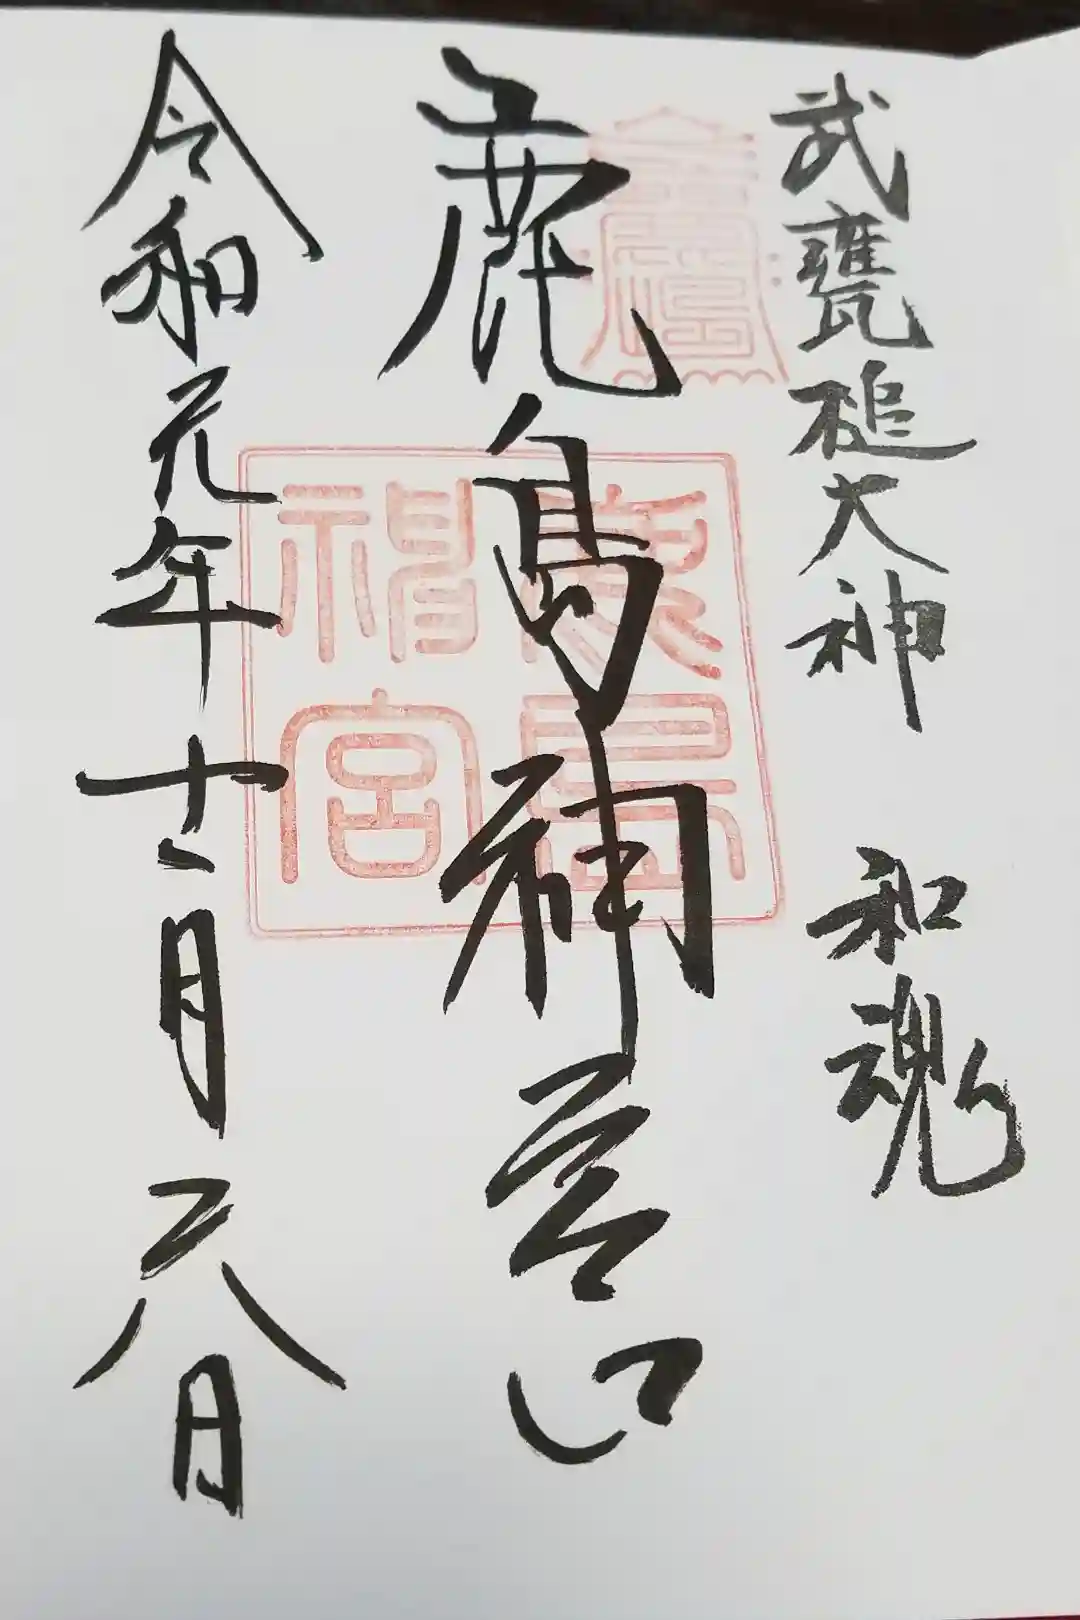 武甕槌大神 和魂
鹿島神宮
鹿島
神宮
令和元年十一月二八日